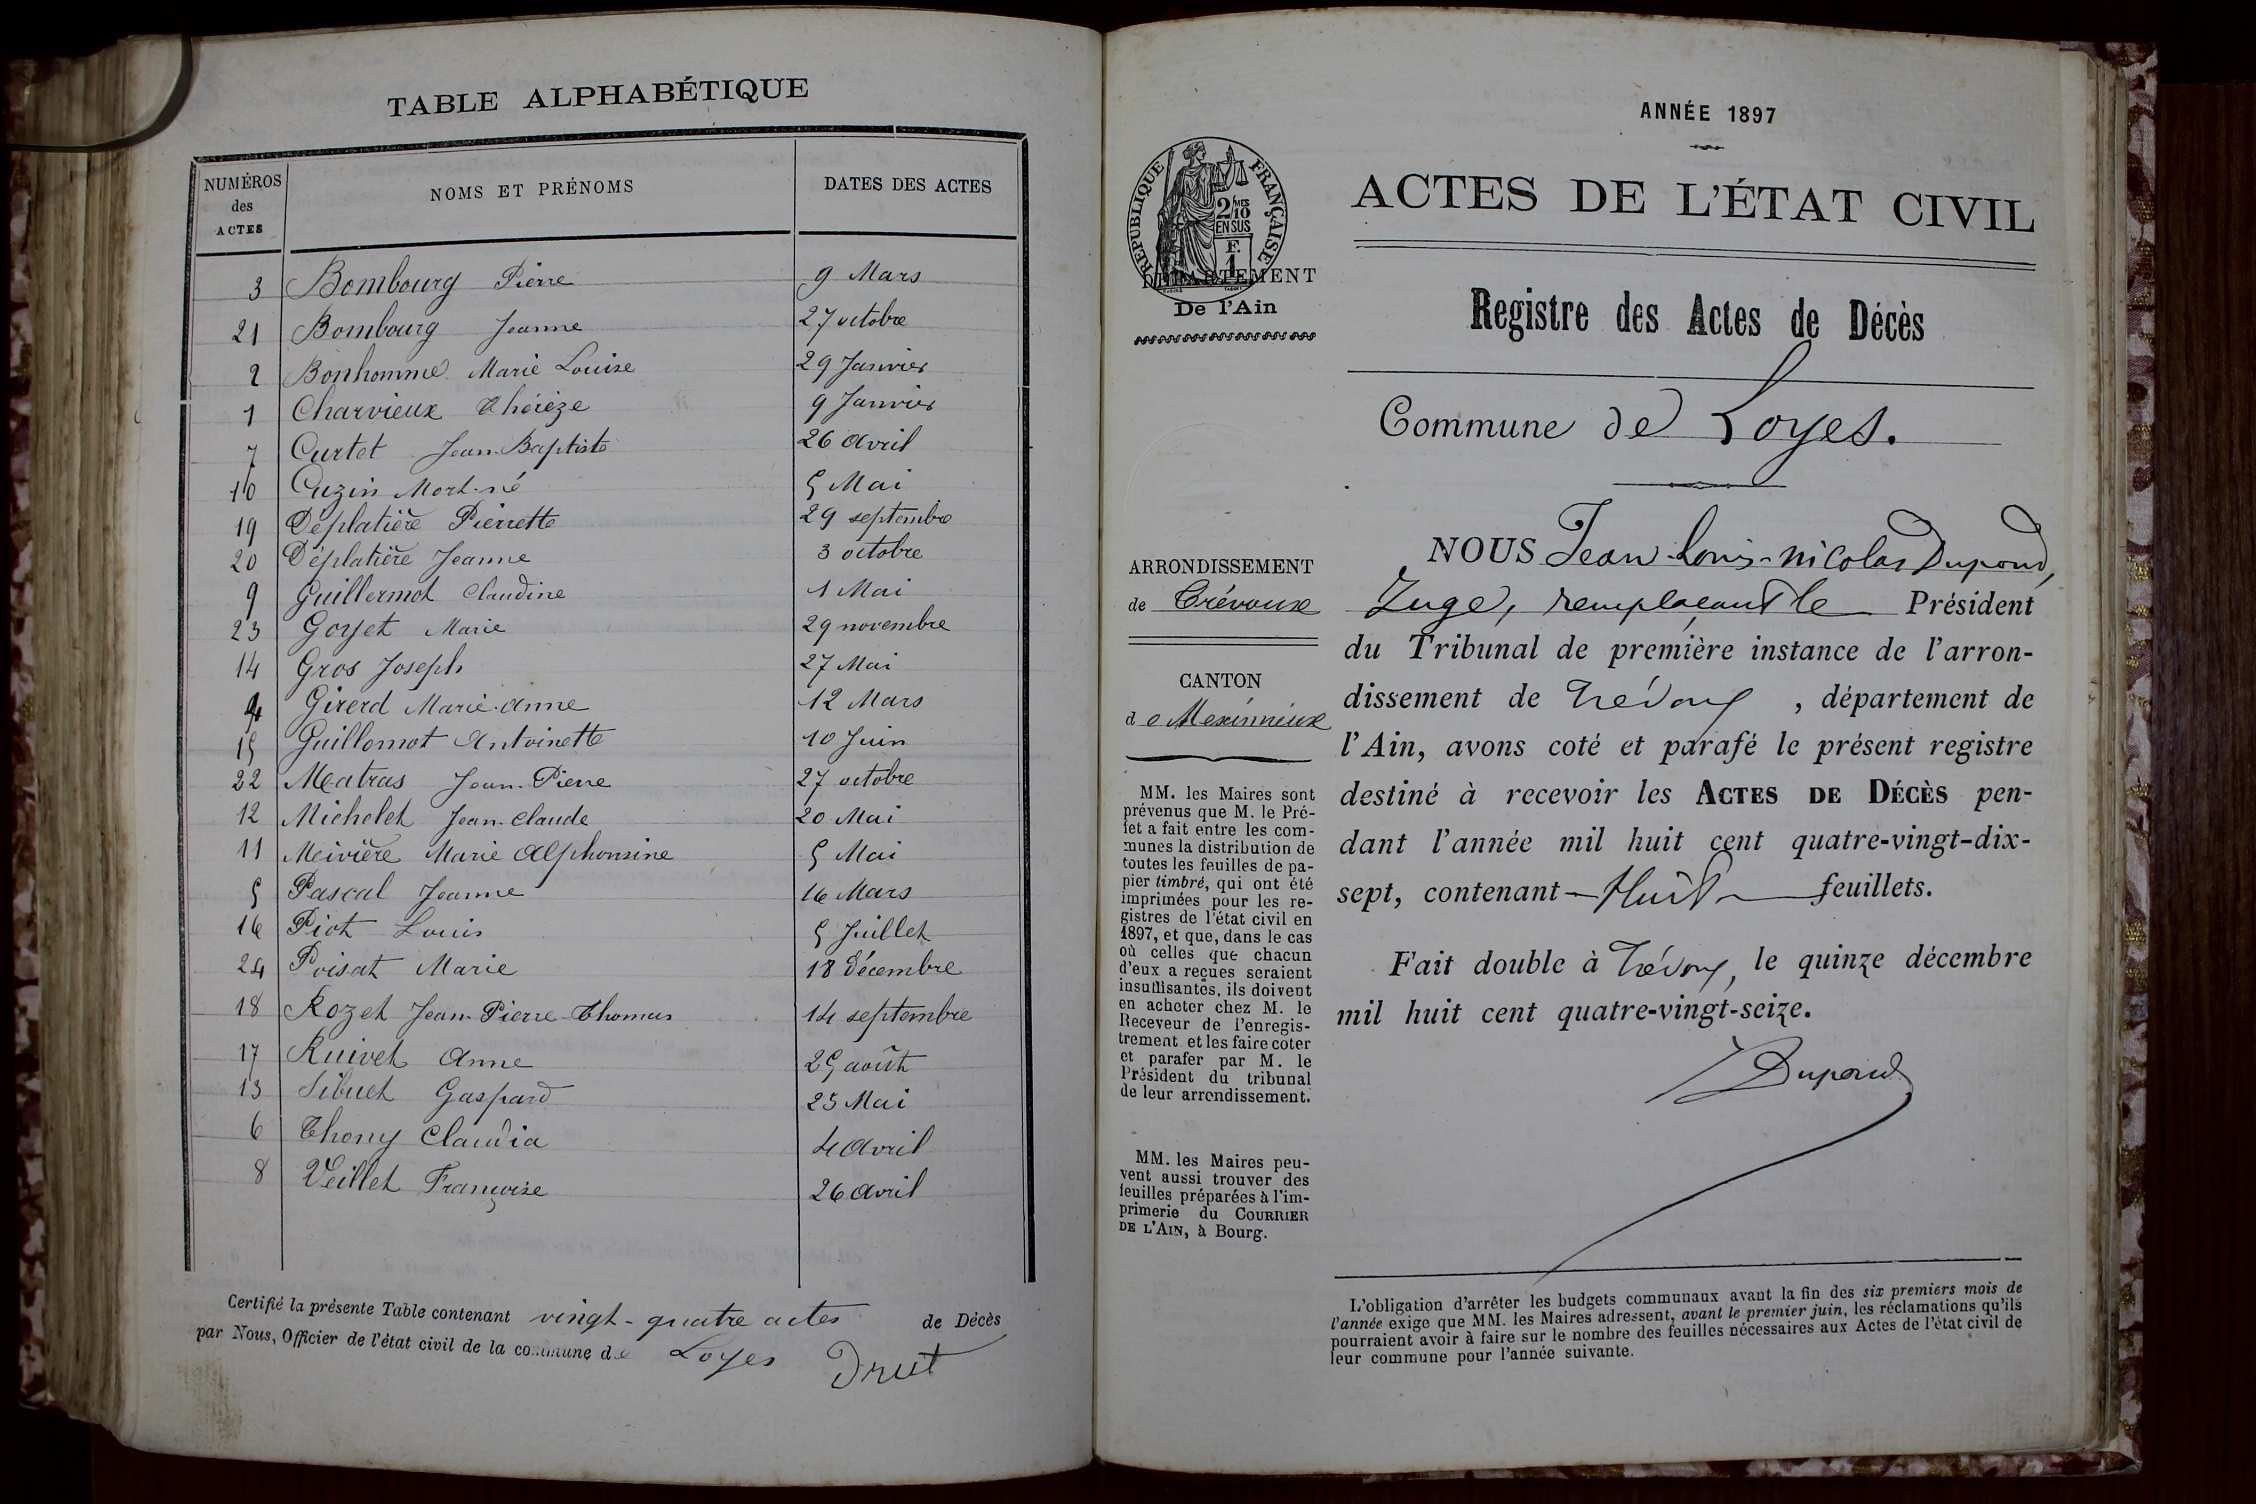 TABLE ALPHABÉTIQUE
NUMÉROS des ACTES NOMS ET PRÉNOMS DATES DES ACTES
3 Bombourg Pierre 9 Mars
21 Bombourg Jeanne 27 octobre
2 Bonhomme Marie Louise 29 Janvier
1 Charvieux Thérèze 9 Janvier
7 Curtet Jean-Baptiste 26 avril
10 Cuzin Mort-né 5 Mai
19 Déplatière Pierrette 29 septembre
20 Déplatière Jeanne 3 octobre
9 Guillermot Claudine 1 Mai
23 Goyet Marie 29 novembre
14 Gros Joseph 27 Mai
4 Girerd Marie-Anne 12 Mars
15 Guillomot Antoinette 10 Juin
22 Matras Jean-Pierre 27 octobre
12 Michelet Jean-Claude 20 Mai
11 Meivière Marie Alphonsine 5 Mai
5 Pascal Jeanne 16 Mars
16 Piot Louis 5 Juillet
24 Poisat Marie 18 Décembre
18 Rozet Jean-Pierre-Thomas 14 septembre
17 Ruivet Anne 25 août
13 Sibuet Gaspard 25 Mai
6 Thony Claudia 4 avril
8 Veillet Françoise 26 avril
Certifié la présente Table contenant vingt-quatre actes de Décès
par Nous, Officier de l'état civil de la commune de Loyes
Drut
ANNÉE 1897
RÉPUBLIQUE FRANÇAISE
2/10 MES
EN SUS
F.
1
DÉPARTEMENT
De l'Ain
ARRONDISSEMENT
de Trévoux
CANTON
de Meximieux
MM. les Maires sont
prévenus que M. le Pré-
fet a fait entre les com-
munes la distribution de
toutes les feuilles de pa-
pier timbré, qui ont été
imprimées pour les re-
gistres de l'état civil en
1897, et que, dans le cas
où celles que chacun
d'eux a reçues seraient
insuffisantes, ils doivent
en acheter chez M. le
Receveur de l'enregis-
trement et les faire coter
et parafer par M. le
Président du tribunal
de leur arrondissement.
MM. les Maires peu-
vent aussi trouver des
feuilles préparées à l'im-
primerie du COURRIER
DE L'AIN, à Bourg.
ACTES DE L'ÉTAT CIVIL
Registre des Actes de Décès
Commune de Loyes.
NOUS Jean-Louis-Nicolas Dupond,
Juge, remplaçant le Président
du Tribunal de première instance de l'arron-
dissement de Trévoux, département de
l'Ain, avons coté et parafé le présent registre
destiné à recevoir les ACTES DE DÉCÈS pen-
dant l'année mil huit cent quatre-vingt-dix-
sept, contenant — Huit — feuillets.
Fait double à Trévoux, le quinze décembre
mil huit cent quatre-vingt-seize.
Dupond
L'obligation d'arrêter les budgets communaux avant la fin des six premiers mois de
l'année exige que MM. les Maires adressent, avant le premier juin, les réclamations qu'ils
pourraient avoir à faire sur le nombre des feuilles nécessaires aux Actes de l'état civil de
leur commune pour l'année suivante.